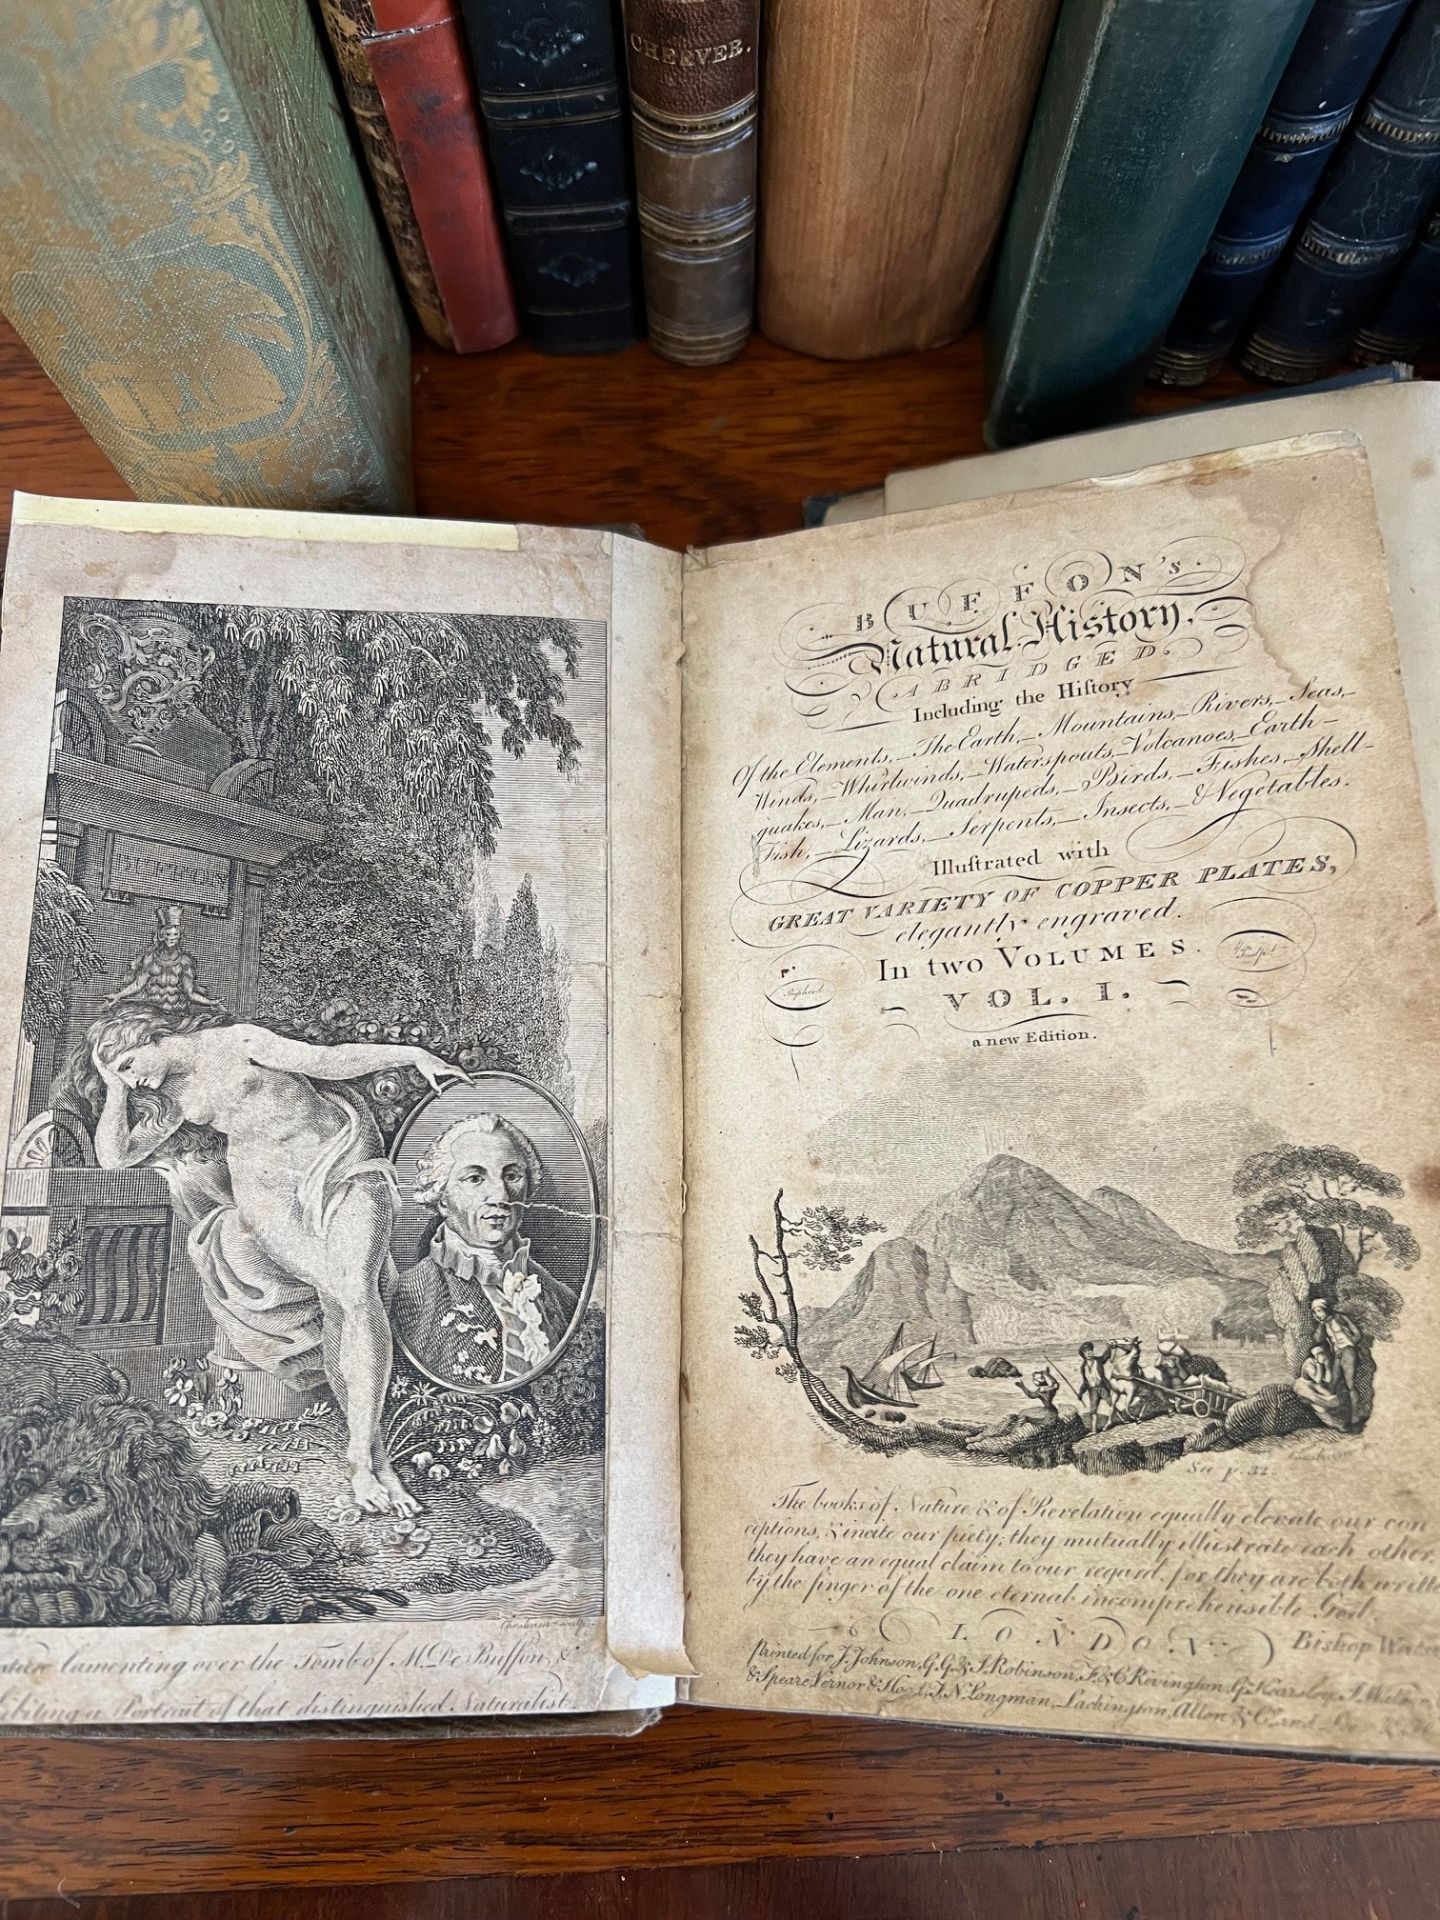 CHEEVER.
BUFFON
Chesham sculp.
lamenting over the Tomb of M. De Buffon, &
a Portrait of that distinguished Naturalist.
BUFFON's
Natural History,
ABRIDGED.
Including the Hiſtory
Of the Elements,—The Earth,—Mountains,—Rivers,—Seas,—
Winds,—Whirlwinds,—Waterspouts,—Volcanoes,—Earth-
quakes,—Man,—Quadrupeds,—Birds,—Fishes,—Shell-
Fish,—Lizards,—Serpents,—Insects,—& Vegetables.
Illuſtrated with
GREAT VARIETY OF COPPER PLATES,
elegantly engraved.
In two VOLUMES.
VOL. I.
a new Edition.
See p. 32.
The books of Nature & of Revelation equally elevate our con
ceptions, & incite our piety; they mutually illustrate each other.
they have an equal claim to our regard, for they are both
by the finger of the one eternal incomprehensible God.
Bishop
LONDON
Printed for J. Johnson, G.G. & J. Robinson, F. & C. Rivington, G. Kearsley,
& Speare, Vernor & Hood, T.N. Longman, Lackington, Allen & Co. and